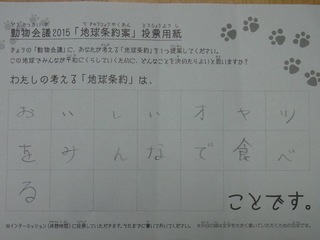 動物会議2015「地球条約案」投票用紙
きょうの「動物会議」に、あなたが考える「地球条約」を1つ提案してください。
この地球でみんなが平和にくらしていくために、どんなことを決めたらよいと思いますか?
わたしの考える「地球条約」は、
おいしいオヤツ
をみんなで食べ
る
ことです。